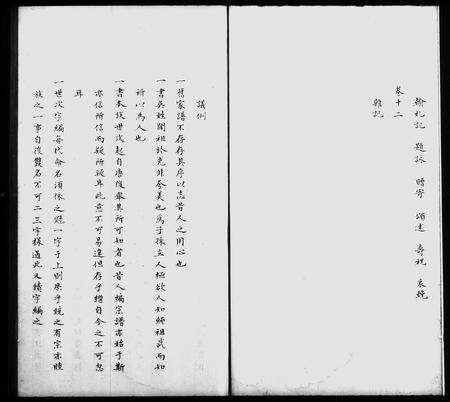 翰札記 題詠 贈寄 頌達 壽祝 哀輓
卷十二
雜記
議例
一舊家譜不存存其序以志昔人之用心也
一書吳姓開祖於充非夸美也為子孫立人極欲人知繩祖武而知
所以為人也
一書本族世次起自唐後舉其所可知者也昔人編宗譜亦始于斯
亦信所信而疑所疑耳此意不可易遑但存乎繼自今之不可忽
耳
一世次字編每代命名須依之雖一字于上則原乎統之有宗亦睦
族之一事自後雙名不可二三字樣過此又續字編之